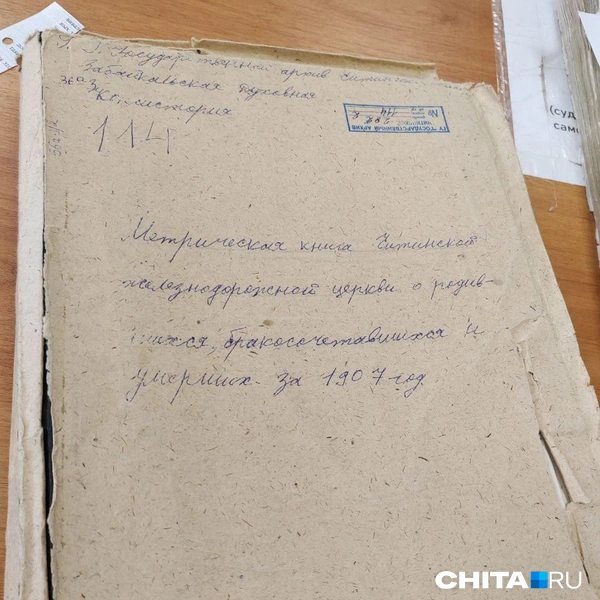 Государственный архив Читинской
Забайкальская духовная
Консистория
114
ГУ "ГОСУДАРСТВЕННЫЙ АРХИВ
ЧИТИНСКОЙ
№
114
Метрическая книга Читинской
железнодорожной церкви о родив-
шихся, бракосочетавшихся и
умерших за 1907 год
(суд
само
CHITA.RU